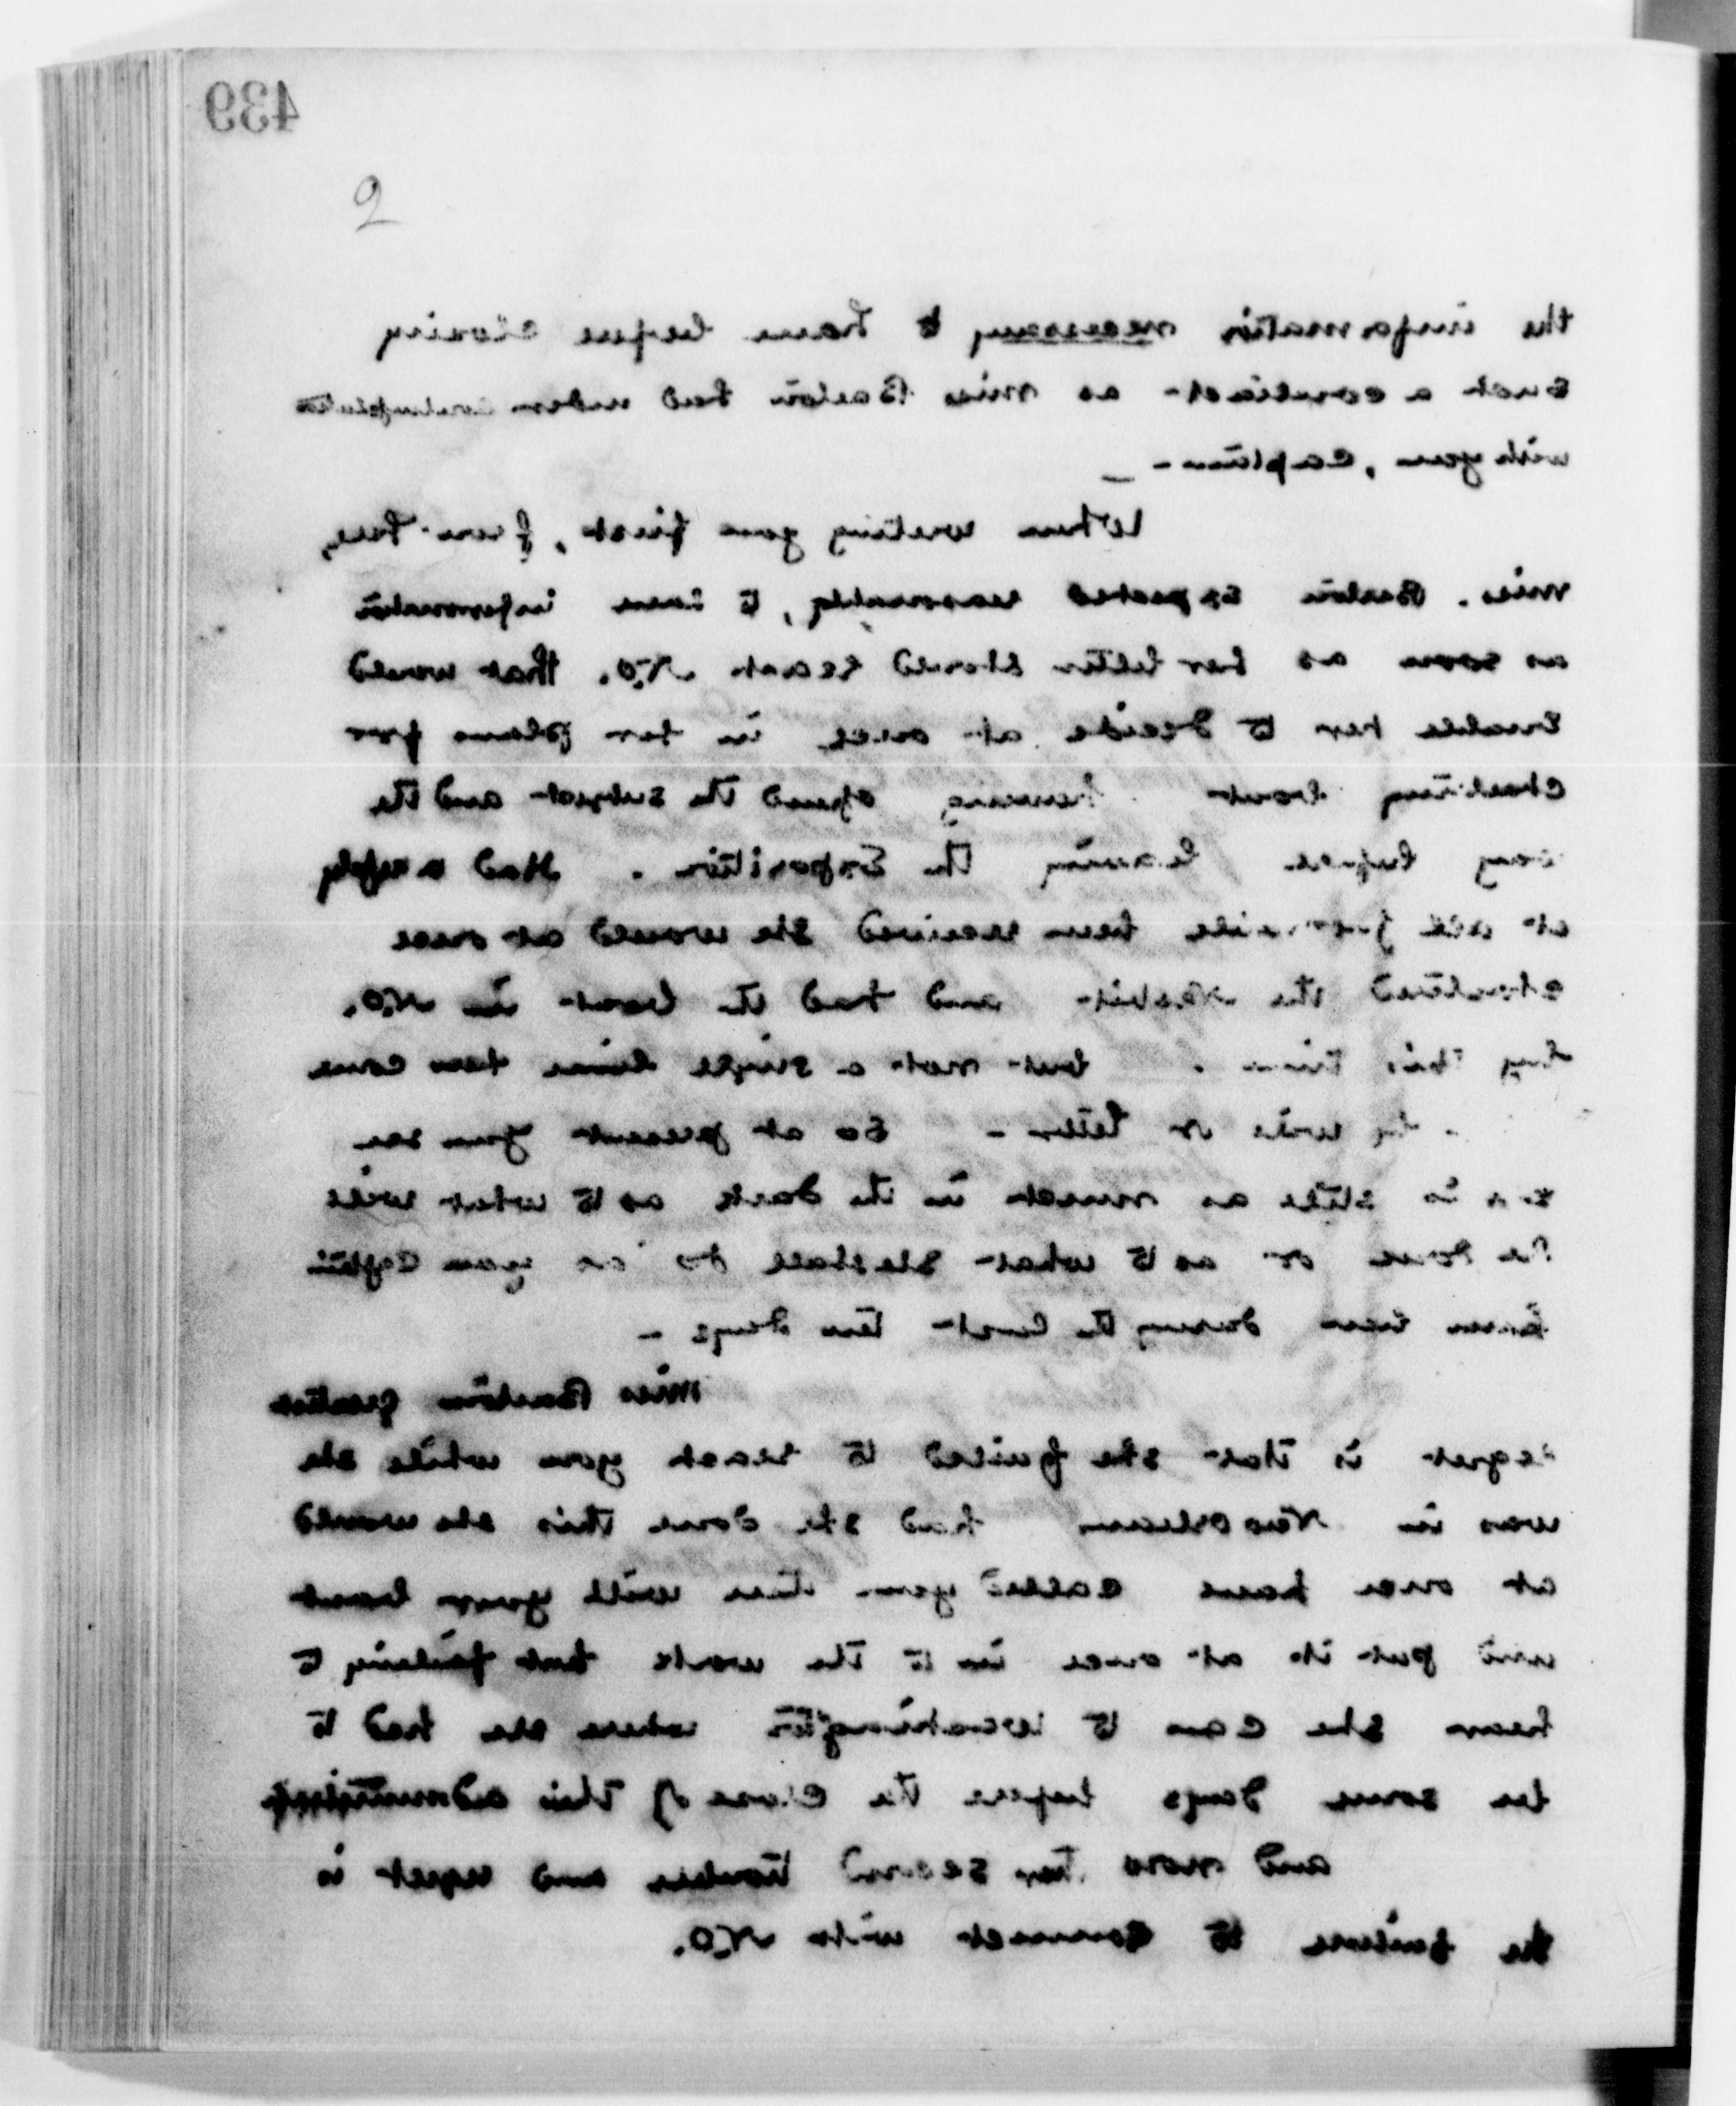 439
2
the information necessary to have before closing
such a contract as Miss Barton had under contemplation
with you, Captain -
When writing you first, from here,
Miss. Barton expected reasonably, to have information
as soon as her letter should reach N.O. that would
enable her to decide at once, in her plans for
chartering boat having opened the subject and the
way before leaving the Exposition. Had a reply
at all favorable been received she would at once
chartered the and had the boat in N.O.
by this time. but not a single line has come
by wire or letter - So at present you see
she is still as much in the dark as to what will
be done or as to what she shall do as you Captain
have been during the last ten days -
Miss Barton greatest
regret is that she failed to reach you while she
was in New Orleans had she done this she would
at once have called you there with your boat
and put it at once in to the work but failing to
hear she came to Washington where she had to
be some days before the close of this administration
and now her second trouble and regret is
the failure to connect with N.O.